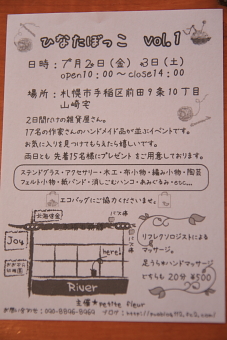 ひなたぼっこ vol.1
日時：7月2日（金）3日（土）
open10：00～close14：00
場所：札幌市手稲区前田9条10丁目
山崎宅
2日間だけの雑貨屋さん。
17名の作家さんのハンドメイド品が並ぶイベントです。
お気に入りを見つけてもらえたら嬉しいです。
両日とも 先着15名様にプレゼント をご用意しております。
ステンドグラス・アクセサリー・木工・布小物・編み小物・陶芸
フェルト小物・紙バンド・消しゴムハンコ・あみぐるみ・etc...
エコバッグにご協力くださいませ。
北海信金
バス停
Joy
here!
バス停
River
リフレクソロジストによる
マッサージ。
足うら・ハンドマッサージ
どちらも 20分 ¥500
主催 petite fleur
お問い合わせ：
ブログ：